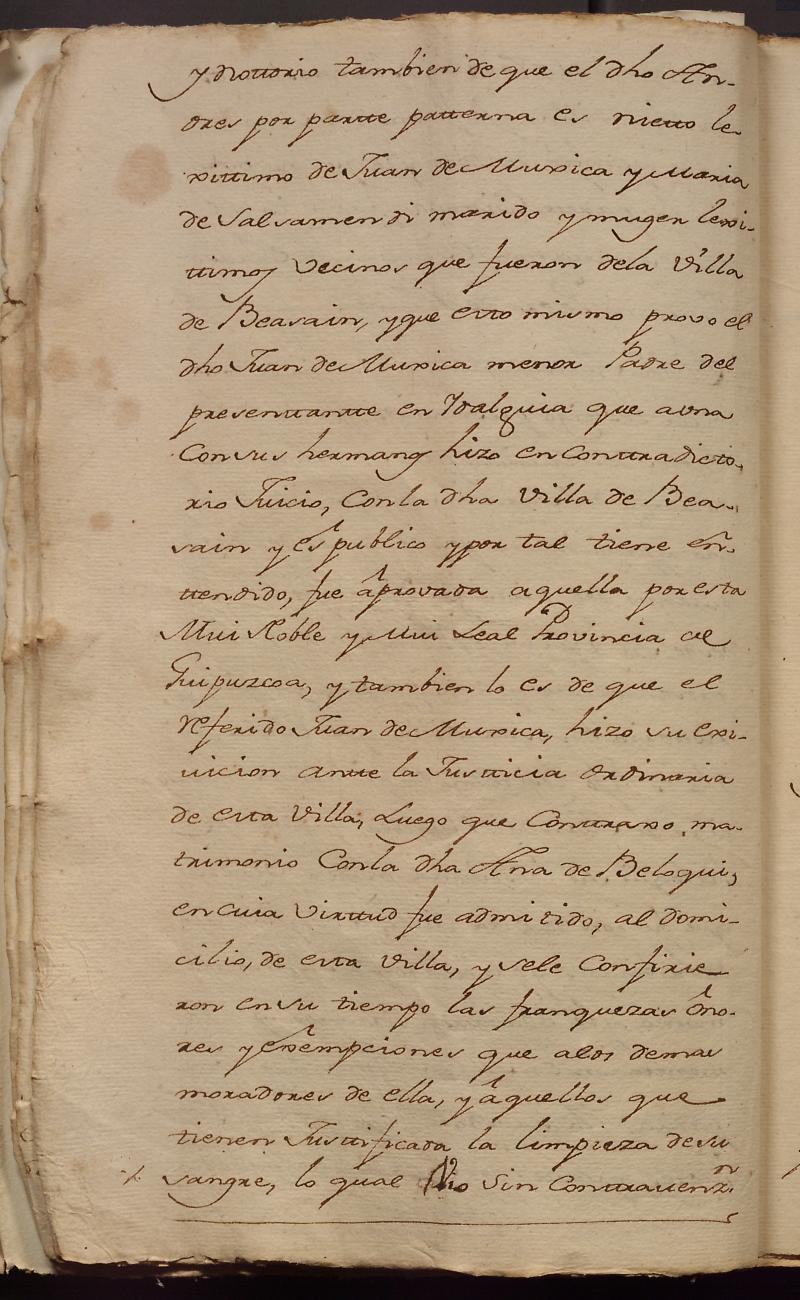 y nottorio tambien de que el dho An-
dres por partte patterna es nietto le-
xittimo de Juan de Muxica y Maria
de Salsamendi marido y muger lexi-
ttimos vecinos que fueron dela Villa
de Beasain, y que esto mismo provo el
dho Juan de Muxica menor Padre del
presenttantte en Ydalguia que a una
Con sus hermanos hizo en Conttradicto-
rio Juicio, Con la dha Villa de Bea-
sain y es publico y por tal tiene en-
ttendido, fue aprovada aquella por esta
Mui Noble y Mui Leal Provincia de
Guipuzcoa, y tambien lo es de que el
referido Juan de Muxica, hizo su exi-
vicion antte la Justticia Ordinaria
de esta Villa, Luego que Conttraxo ma-
trimonio Con la dha Ana de Beloqui,
en cuia Virttud fue admitido, al domi-
cilio, de esta Villa, y sele Confirie
ron en su tiempo las franquezas ono-
res y exempciones que a los demas
moradores de ella, y a quellos que
tienen Justtificada la limpieza de su
sangre, lo qual vio Sin Conttravenzn.